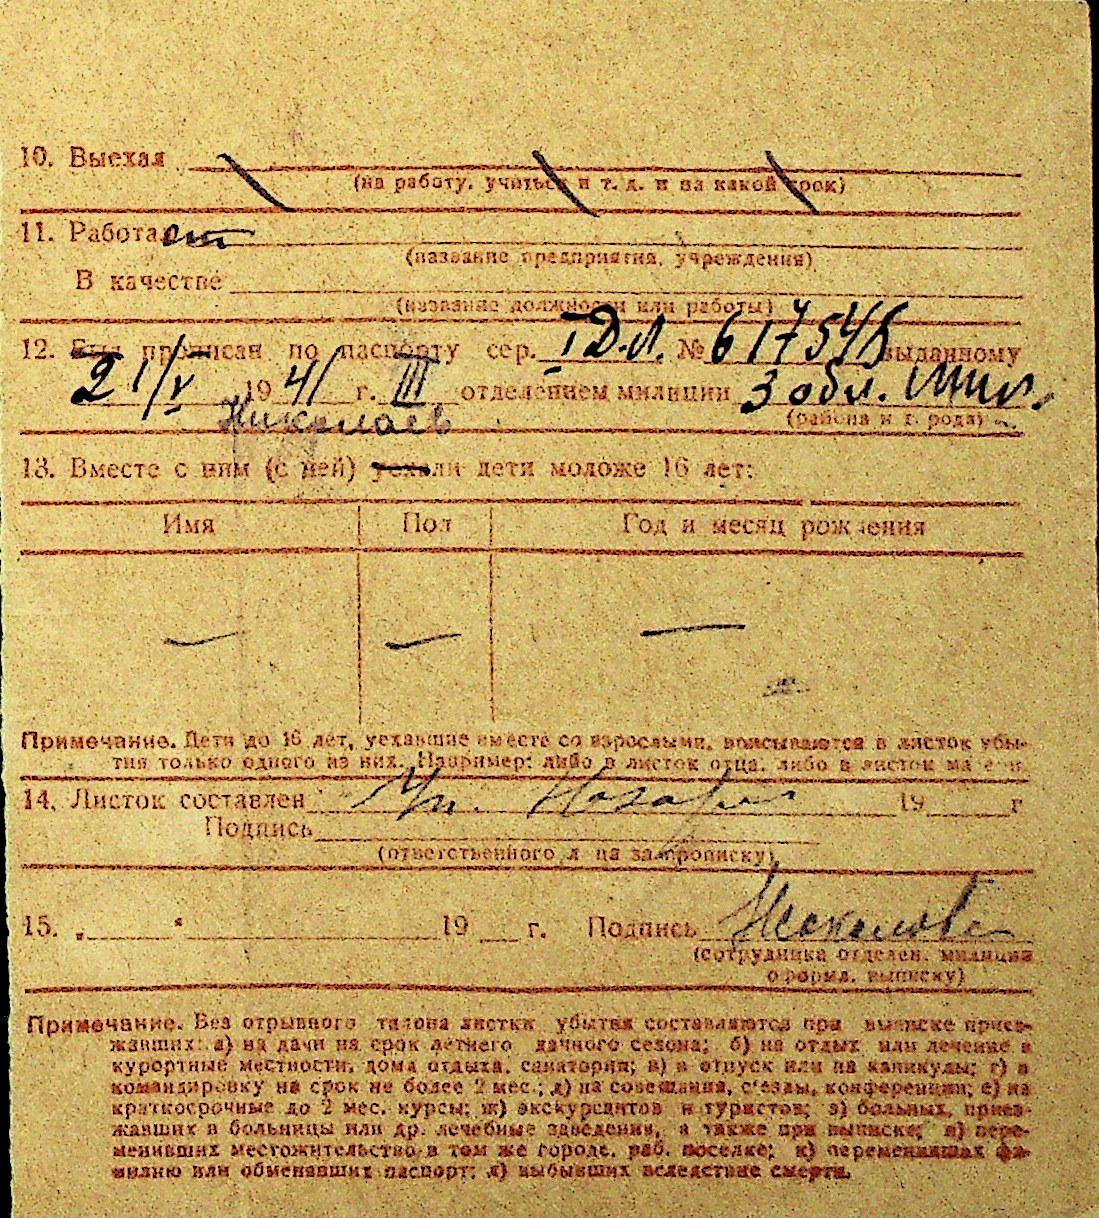 10. Выехал
(на работу, учиться и т. д. и на какой срок)
11. Работа ет
(название предприятия, учреждения)
В качестве
(название должности или работы)
12. Был прописан по паспорту сер. I Д.Л. № 617545 выданному
21/V 1941 г. III отделением милиции 3 обл. мил.
Николаев (района и города)
13. Вместе с ним (с ней) уехали дети моложе 16 лет:
Имя Пол Год и месяц рождения
— — —
Примечание. Дети до 16 лет, уехавшие вместе со взрослыми, вписываются в листок убы-
тия только одного из них. Например: либо в листок отца, либо в листок матери.
14. Листок составлен 19 г
Подпись
(ответственного лица за прописку)
15. „ “ 19 г. Подпись
(сотрудника отделен. милиции
оформл. выписку)
Примечание. Без отрывного талона листки убытия составляются при выписке приез-
жавших: а) на дачи на срок летнего дачного сезона; б) на отдых или лечение в
курортные местности, дома отдыха, санатории; в) в отпуск или на каникулы; г) в
командировку на срок не более 2 мес.; д) на совещания, съезды, конференции; е) на
краткосрочные до 2 мес. курсы; ж) экскурсантов и туристов; з) больных, приез-
жавших в больницы или др. лечебные заведения, а также при выписке; и) пере-
менивших местожительство в том же городе, раб. поселке; к) переменивших фа-
милию или обменявших паспорт; л) выбывших вследствие смерти.